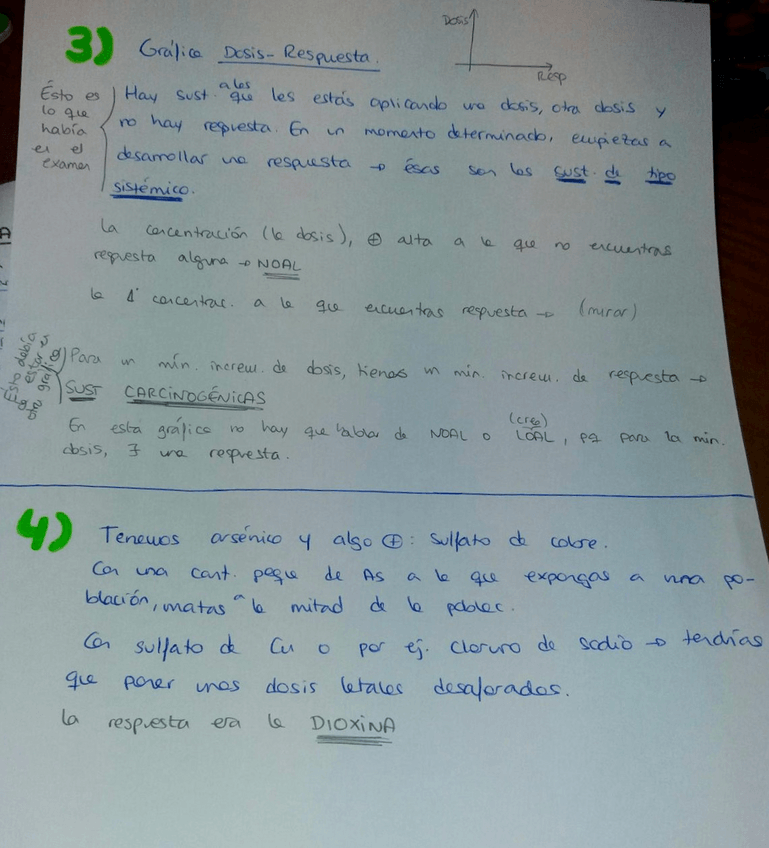 Dosis
Resp
3) Gráfica Dosis-Respuesta.
Ésto es
lo que
había
en el
examen
Hay sust. a las que les estás aplicando una dosis, otra dosis y
no hay respuesta. En un momento determinado, empiezas a
desarrollar una respuesta → ésas son las sust. de tipo
sistémico.
La concentración (la dosis), ⊕ alta a la que no encuentras
respuesta alguna → NOAL
la 1ª concentrac. a la que encuentras respuesta → (mirar)
Ésto debía
estar en
otra gráfica
Para un mín. increm. de dosis, tienes un mín. increm. de respuesta →
SUST CARCINOGÉNICAS
(creo)
En está gráfica no hay que hablar de NOAL o LOAL, pq para la mín.
dosis, ∃ una respuesta.
4) Tenemos arsénico y algo ⊕: sulfato de cobre.
Con una cant. peque de As a la que expongas a una po-
blación, matas a la mitad de la poblac.
Con sulfato de Cu o por ej. cloruro de sodio → tendrías
que poner unas dosis letales desaforadas.
La respuesta era la DIOXINA